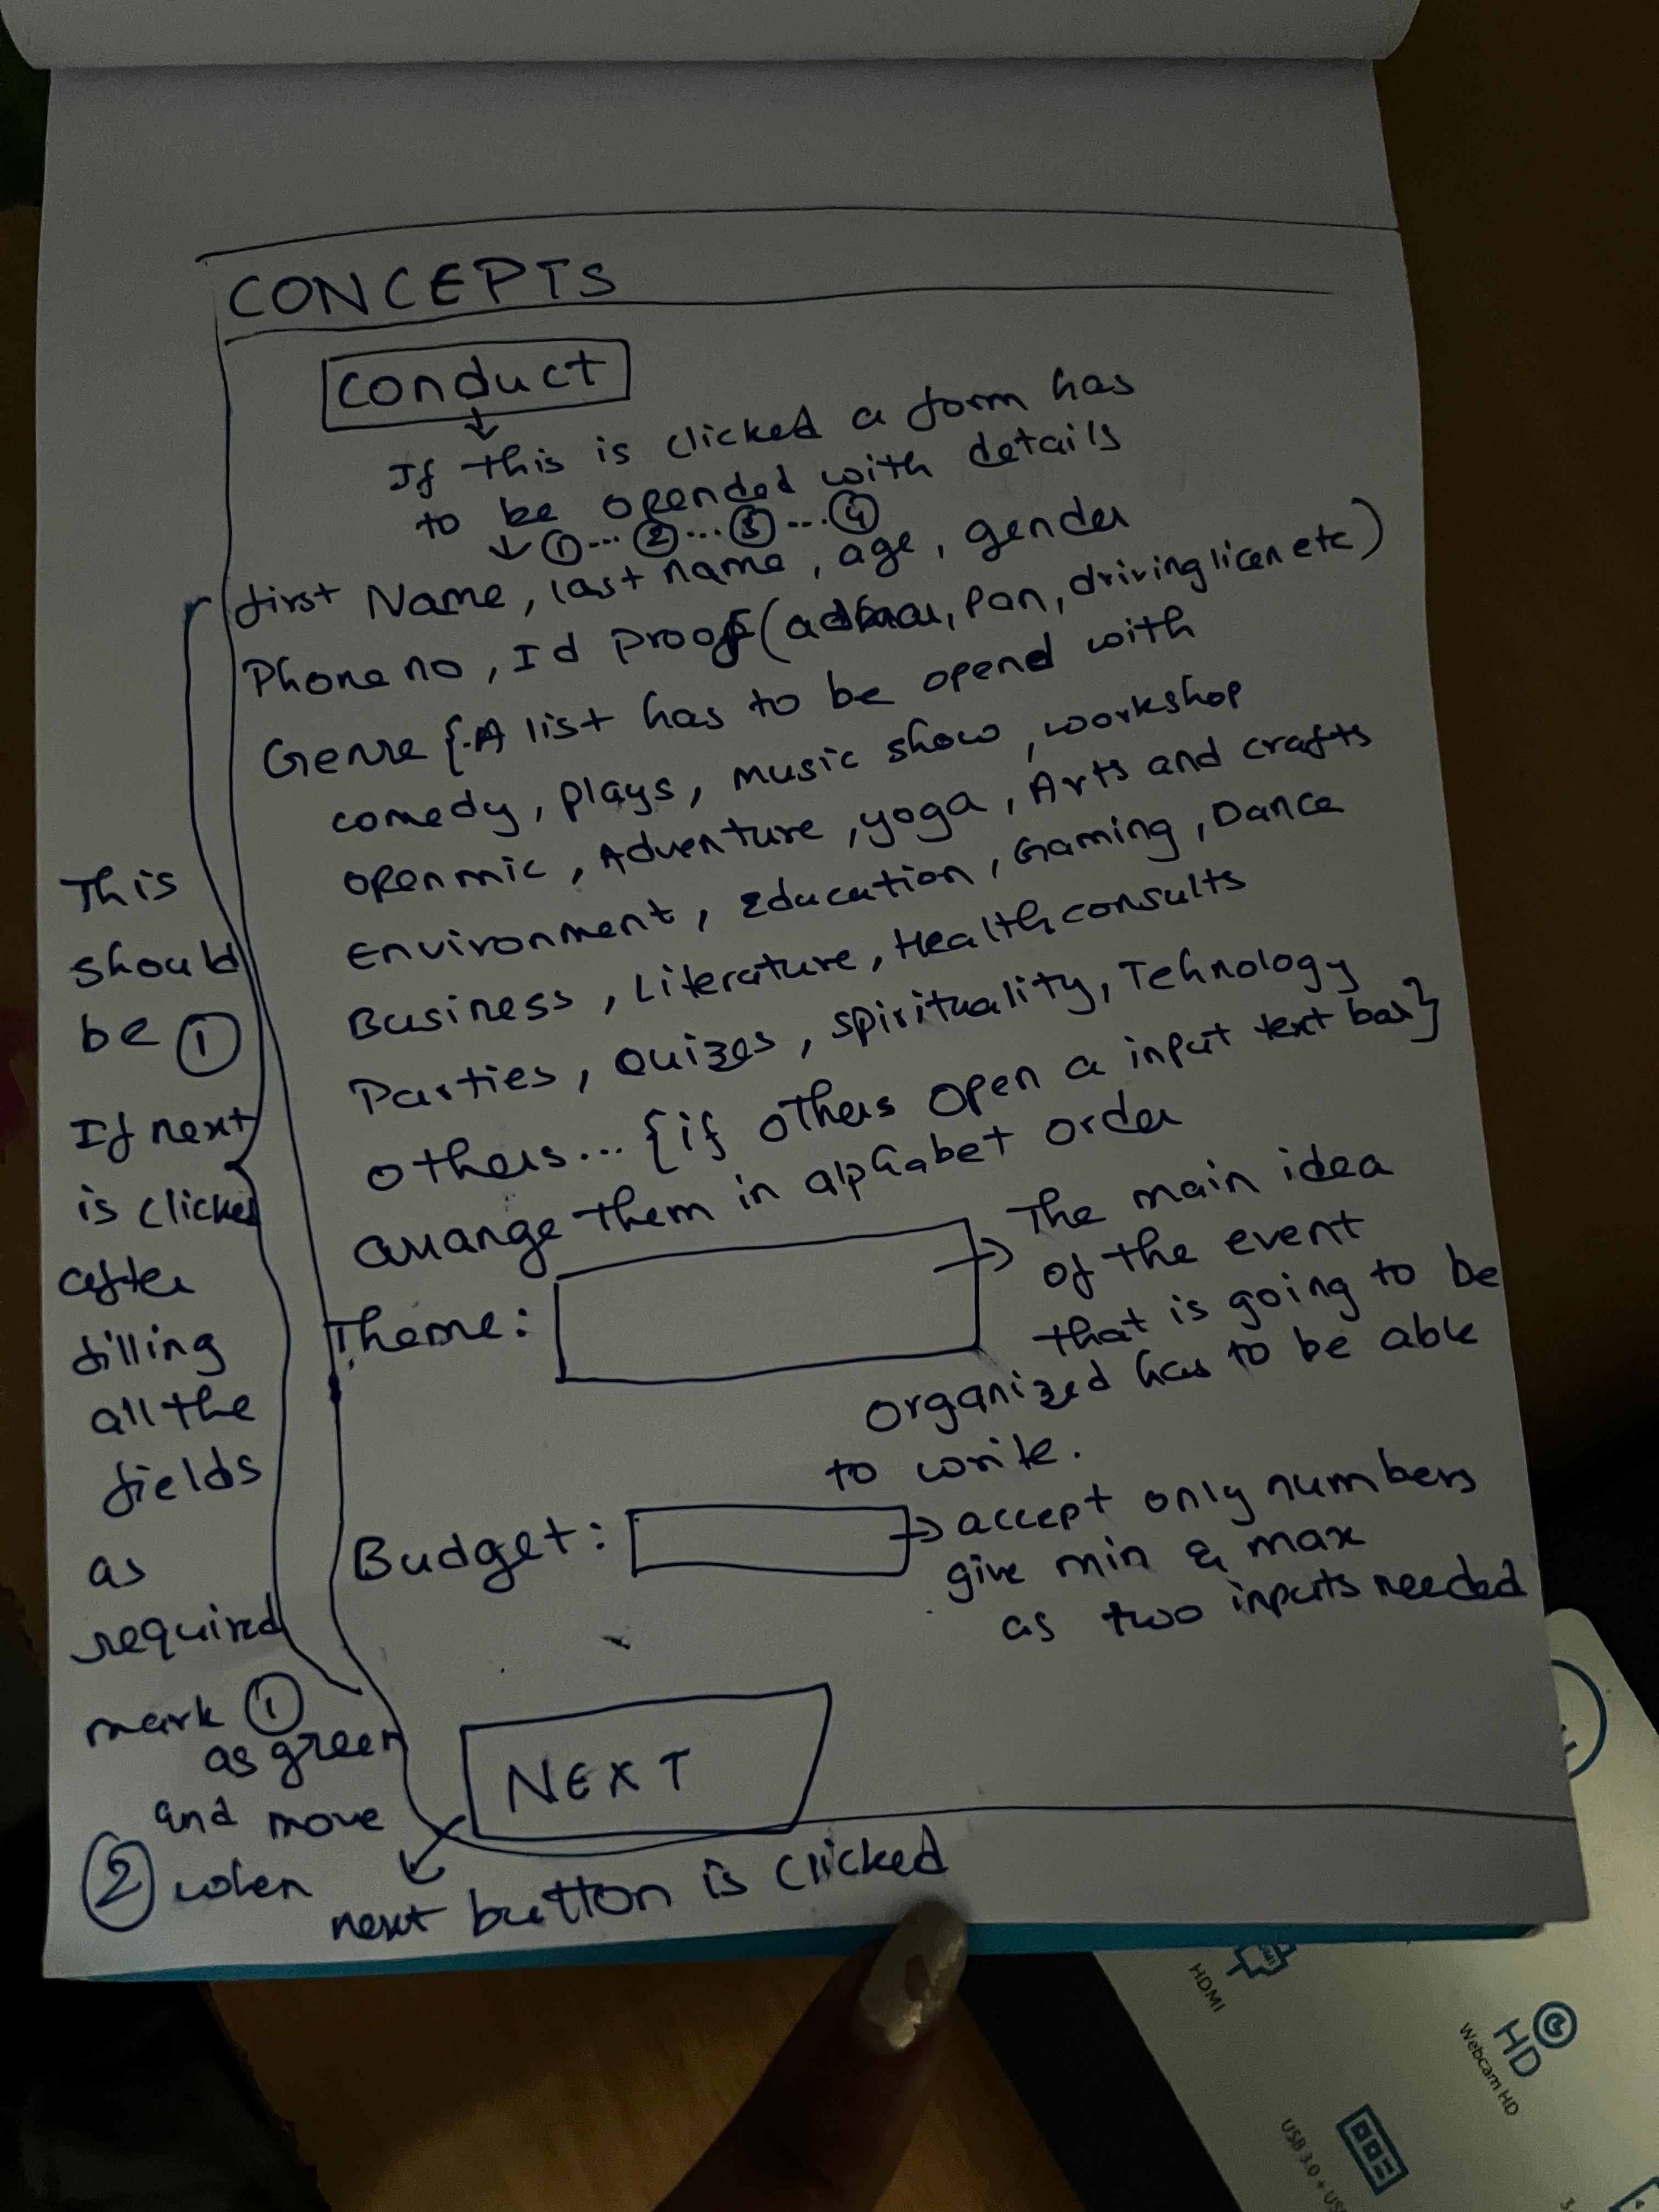 CONCEPTS
conduct
If this is clicked a form has
to be opended with details
1 --- 2 ... 3 ... 4
first Name, last name, age, gender
Phone no, Id proof (adhaar, Pan, driving licen etc)
Genre {. A list has to be opend with
comedy, plays, music show, workshop
openmic, Adventure, yoga, Arts and crafts
Environment, Education, Gaming, Dance
Business, Literature, Health consults
Parties, Quizes, spirituality, Tehnology
others... {if others open a input text bar}
arrange them in alphabet order
Theme:
The main idea
of the event
that is going to be
organized has to be able
to write.
Budget:
accept only numbers
give min & max
as two inputs needed
NEXT
This
should
be 1
If next
is clicked
after
filling
all the
fields
as
required
mark 1
as green
and move
2 when
next button is clicked
HDMI
HD
Webcam HD
USB 3.0 +